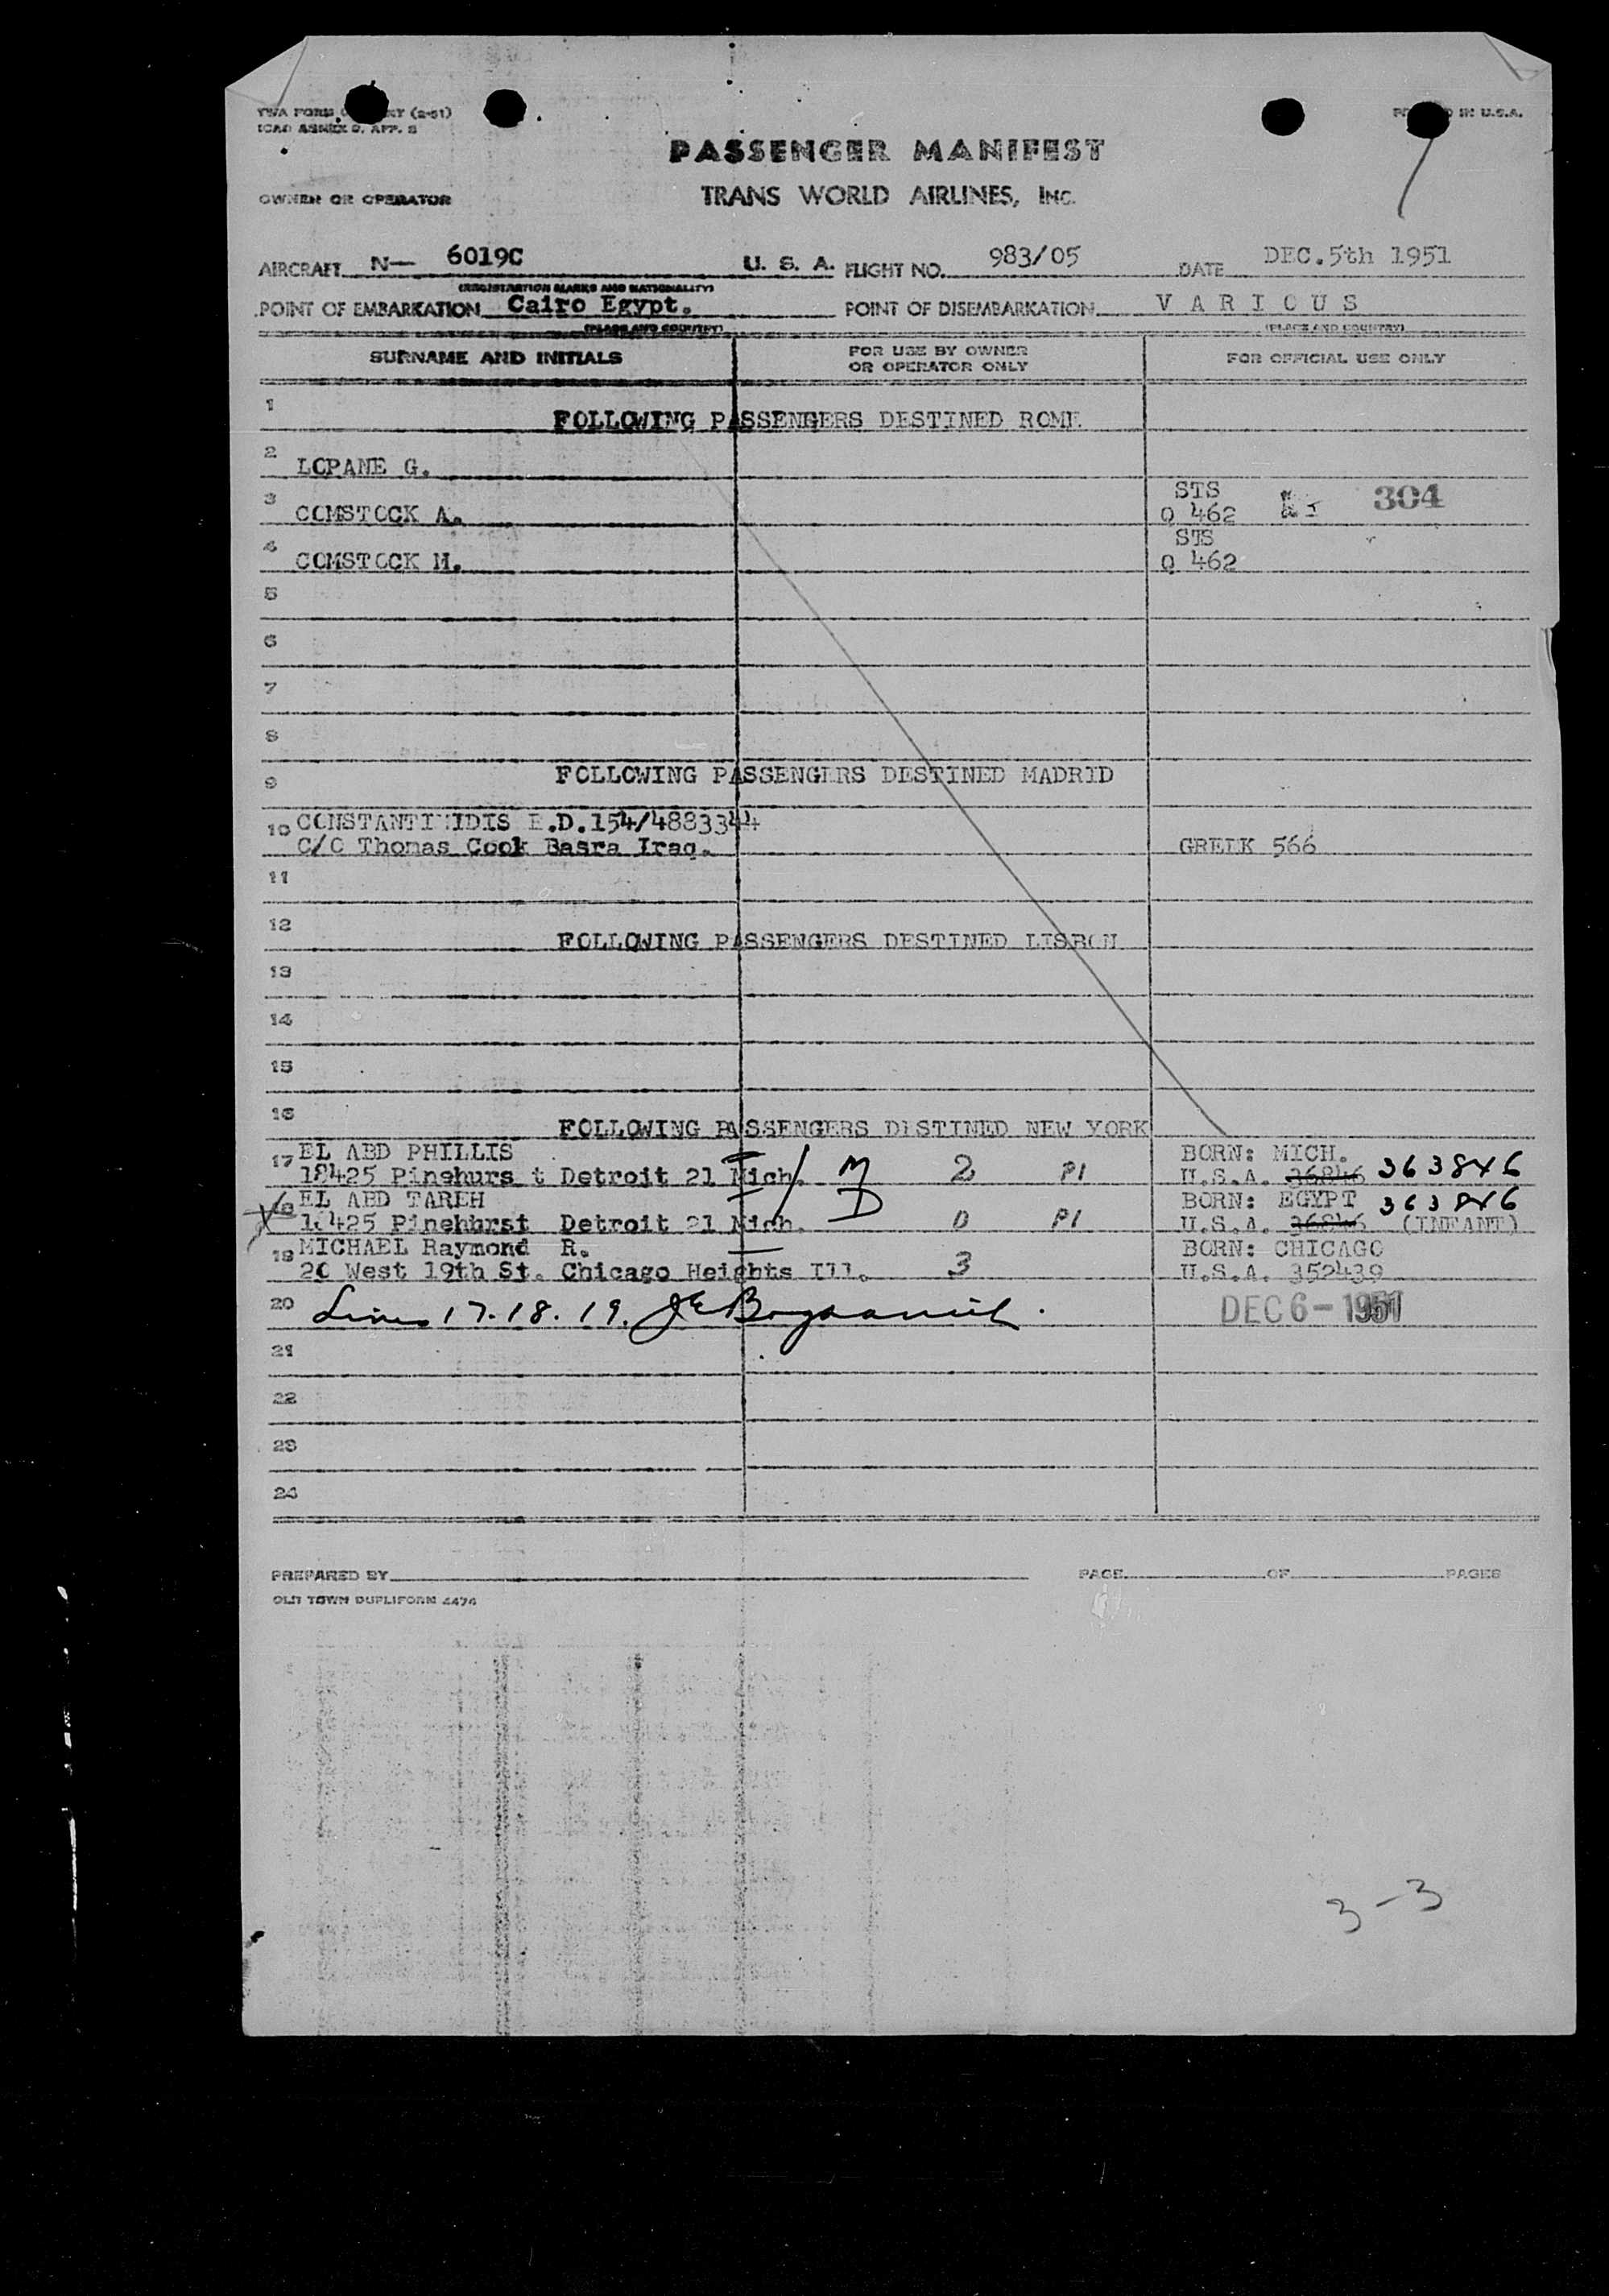 TWA FORM (2-51)
ICAO ANNEX 9, APP. 5
IN U.S.A.
PASSENGER MANIFEST
OWNER OR OPERATOR TRANS WORLD AIRLINES, INC.
AIRCRAFT N— 6019C U. S. A. FLIGHT NO. 983/05 DATE DEC.5th 1951
(REGISTRATION MARKS AND NATIONALITY)
POINT OF EMBARKATION Cairo Egypt. POINT OF DISEMBARKATION V A R I O U S
(PLACE AND COUNTRY) (PLACE AND COUNTRY)
SURNAME AND INITIALS FOR USE BY OWNER OR OPERATOR ONLY FOR OFFICIAL USE ONLY
1 FOLLOWING PASSENGERS DESTINED ROME
2 LOPANE G.
3 COMSTOCK A. STS Q 462 304
4 COMSTOCK M. STS Q 462
5
6
7
8
9 FOLLOWING PASSENGERS DESTINED MADRID
10 CONSTANTINIDIS E.D.154/4883344
C/O Thomas Cook Basra Iraq. GREEK 566
11
12 FOLLOWING PASSENGERS DESTINED LISBON
13
14
15
16 FOLLOWING PASSENGERS DESTINED NEW YORK
17 EL ABD PHILLIS BORN: MICH.
18425 Pinehurst Detroit 21 Mich. M 2 P1 U.S.A. 36846 363846
18 EL ABD TAREH BORN: EGYPT 363846
18425 Pinehurst Detroit 21 Mich. D 0 P1 U.S.A. 36846 (INFANT)
19 MICHAEL Raymond R. BORN: CHICAGO
20 West 19th St. Chicago Heights Ill. 3 U.S.A. 352439
20 Lines 17.18.19. DEC 6 - 1951
21
22
23
24
PREPARED BY PAGE OF PAGES
OLD TOWN DUPLIFORM 4474
3-3